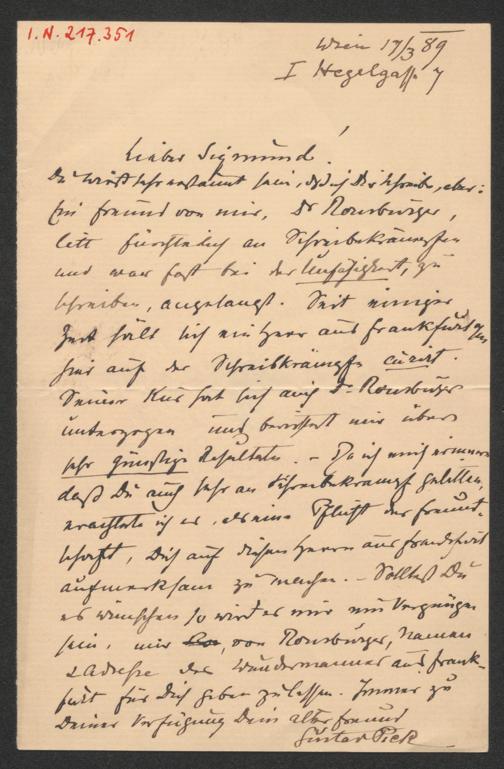 I.N. 217.351
Wien 17/3 89
I Hegelgasse 7
Lieber Sigmund!
Du wirst sehr erstaunt sein, daß ich Dir schreibe, aber:
Ein Freund von mir, Dr
litt fürchterlich an Schreibekrämpfen
und war fast bei der Unfähigkeit, zu
schreiben, angelangt. Seit einiger
Zeit hält sich ein Herr aus Frankfurt a/M
hier auf der Schreibkrämpfe curirt.
Seiner Kur hat sich auch Dr
unterzogen und berichtet mir über
sehr günstige Resultate. – Da ich mich erinnere
daß Du auch sehr an Schreibekrampf gelitten,
erachtete ich es, als eine Pflicht der Freund-
schaft, Dich auf diesen Herrn aus Frankfurt
aufmerksam zu machen. – Solltest Du
es wünschen so wird es mir ein Vergnügen
sein, mir von Namen
& Adresse des Wundermannes aus Frank-
furt für Dich geben zu lassen. Immer zu
Deiner Verfügung Dein alter Freund
Gustav Pick